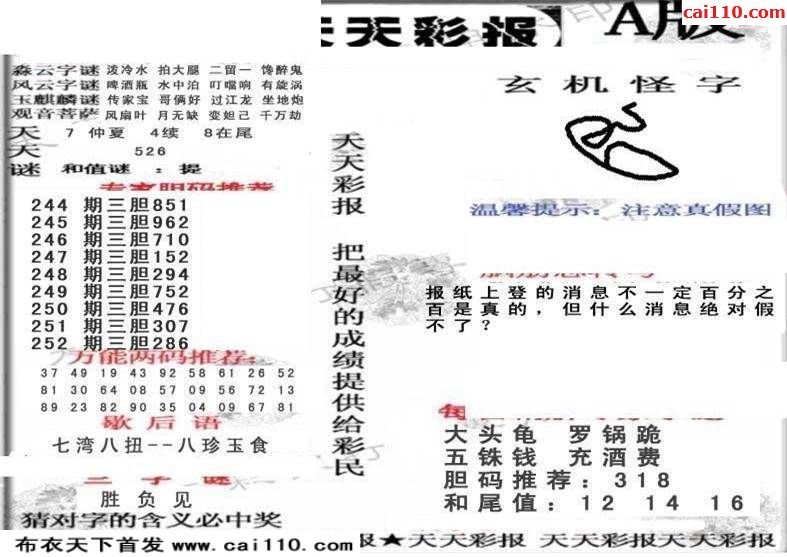 天天彩报】 A版
cai110.com
森云字谜 泼冷水 拍大腿 二留一 馋醉鬼
风云字谜 啤酒瓶 水中泊 叮噹响 有旋涡
玉麒麟谜 传家宝 哥俩好 过江龙 坐地炮
观音菩萨 风扇叶 月无缺 变妲己 千万劫
天 7 仲夏 4续 8在尾
天 526
谜 和值谜 : 提
专家胆码推荐
244 期三胆851
245 期三胆962
246 期三胆710
247 期三胆152
248 期三胆294
249 期三胆752
250 期三胆476
251 期三胆307
252 期三胆286
万能两码推荐:
37 49 19 43 92 58 61 26 52
81 30 64 08 57 09 56 72 13
89 23 82 90 35 04 09 67 81
歇后语
七湾八扭--八珍玉食
三字谜
胜负见
猜对字的含义必中奖
布衣天下首发 www.cai110.com
天天彩报 把最好的成绩提供给彩民
玄机怪字
温馨提示: 注意真假图
报纸上登的消息不一定百分之
百是真的，但什么消息绝对假
不了？
大头龟 罗锅跪
五铢钱 充酒费
胆码推荐: 318
和尾值: 12 14 16
报★天天彩报 天天彩报天天彩报